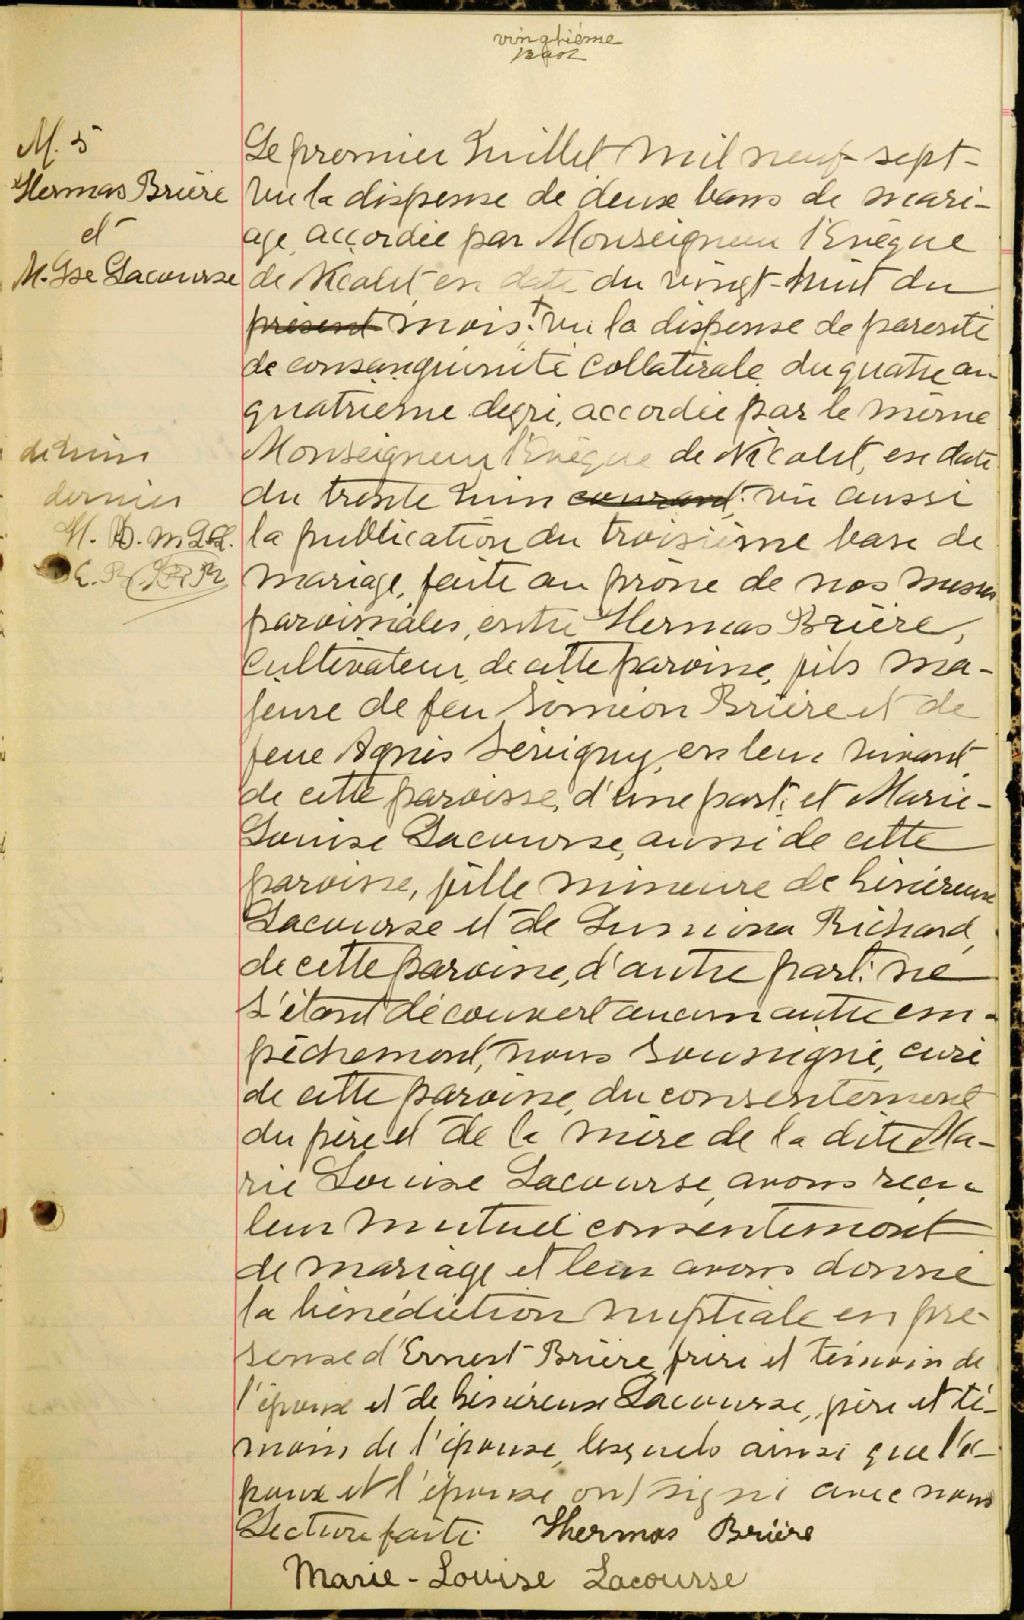 vingtième
M. 5
Hermas Brière
et
M. Lse Lacourse
Le premier Juillet mil neuf sept-
vu la dispense de deux bans de mari-
age, accordée par Monseigneur l'Evêque
de Nicolet en date du vingt-huit du
présent mois: vu la dispense de parenté
de consanguinité collatérale du quatre au
quatrième degré, accordée par le même
Monseigneur l'Evêque de Nicolet, en date
du trente Juin courant: vu aussi
la publication du troisième banc de
mariage, faite au prône de nos messes
paroissiales, entre Hermas Brière,
cultivateur, de cette paroisse, fils ma-
jeure de feu Siméon Brière et de
feue Agnès Sévigny, en leur vivant
de cette paroisse, d'une part; et Marie-
Louise Lacourse, aussi de cette
paroisse, fille mineure de Sévéreuse
Lacourse et de Lumina Richard,
de cette paroisse, d'autre part: ne
s'étant découvert aucun autre em-
pêchement, nous soussigné, curé
de cette paroisse, du consentement
du père et de la mère de la dite Ma-
rie Louise Lacourse, avons reçu
leur mutuel consentement
de mariage et leur avons donné
la bénédiction nuptiale en pré-
sense d'Ernest Brière, frère et témoin de
l'époux et de Lacourse, père et té-
moin de l'épouse, lesquels ainsi que l'é-
poux et l'épouse ont signé avec nous
Lecture faite. Hermas Brière
Marie-Louise Lacourse
de Juin
dernier